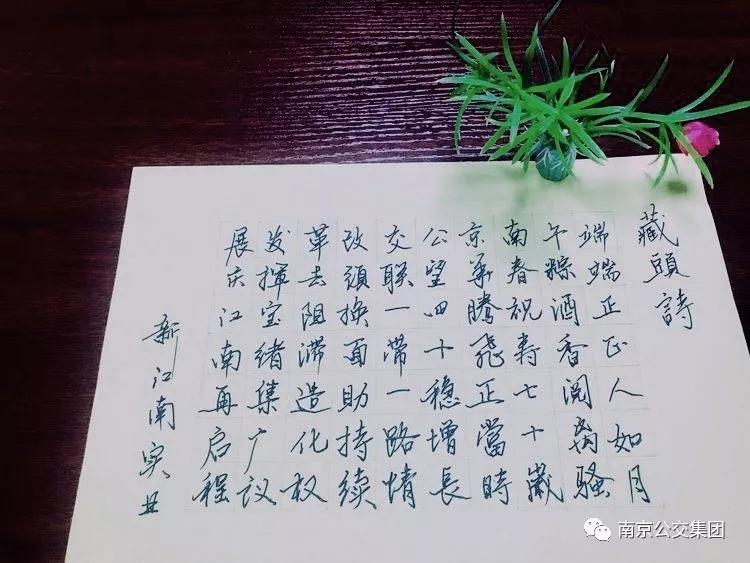 藏頭詩
端端正正人如月
午粽酒香阅离骚
南春祝寿七十歲
京華腾飛正當時
公望四十穩增長
交联一带一路情
改頭换面助持续
革去阻滞造化权
发揮宝绪集广议
展庆江南再启程
新江南实业
南京公交集团